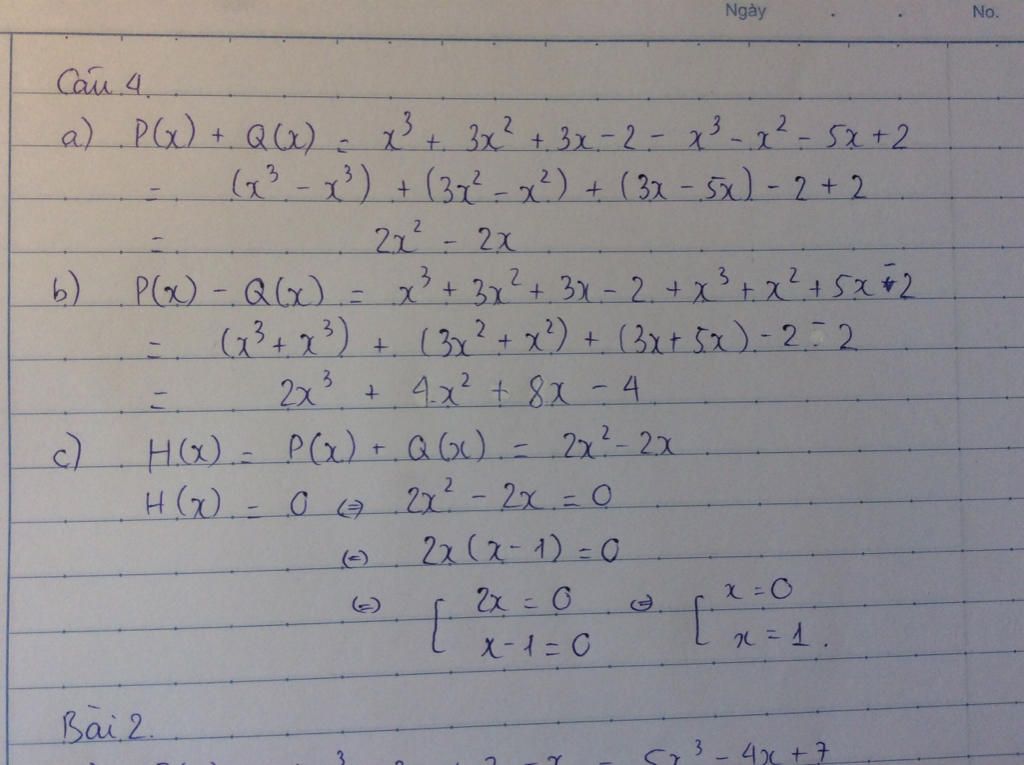 Ngày . . No.
Câu 4.
a) P(x) + Q(x) = x³ + 3x² + 3x - 2 - x³ - x² - 5x + 2
= (x³ - x³) + (3x² - x²) + (3x - 5x) - 2 + 2
= 2x² - 2x
b) P(x) - Q(x) = x³ + 3x² + 3x - 2 + x³ + x² + 5x - 2
= (x³ + x³) + (3x² + x²) + (3x + 5x) - 2 - 2
= 2x³ + 4x² + 8x - 4
c) H(x) = P(x) + Q(x) = 2x² - 2x
H(x) = 0 ⇔ 2x² - 2x = 0
⇔ 2x(x - 1) = 0
⇔ [ 2x = 0 ⇔ [ x = 0
x - 1 = 0 x = 1.
Bài 2.
5x³ - 4x + 7